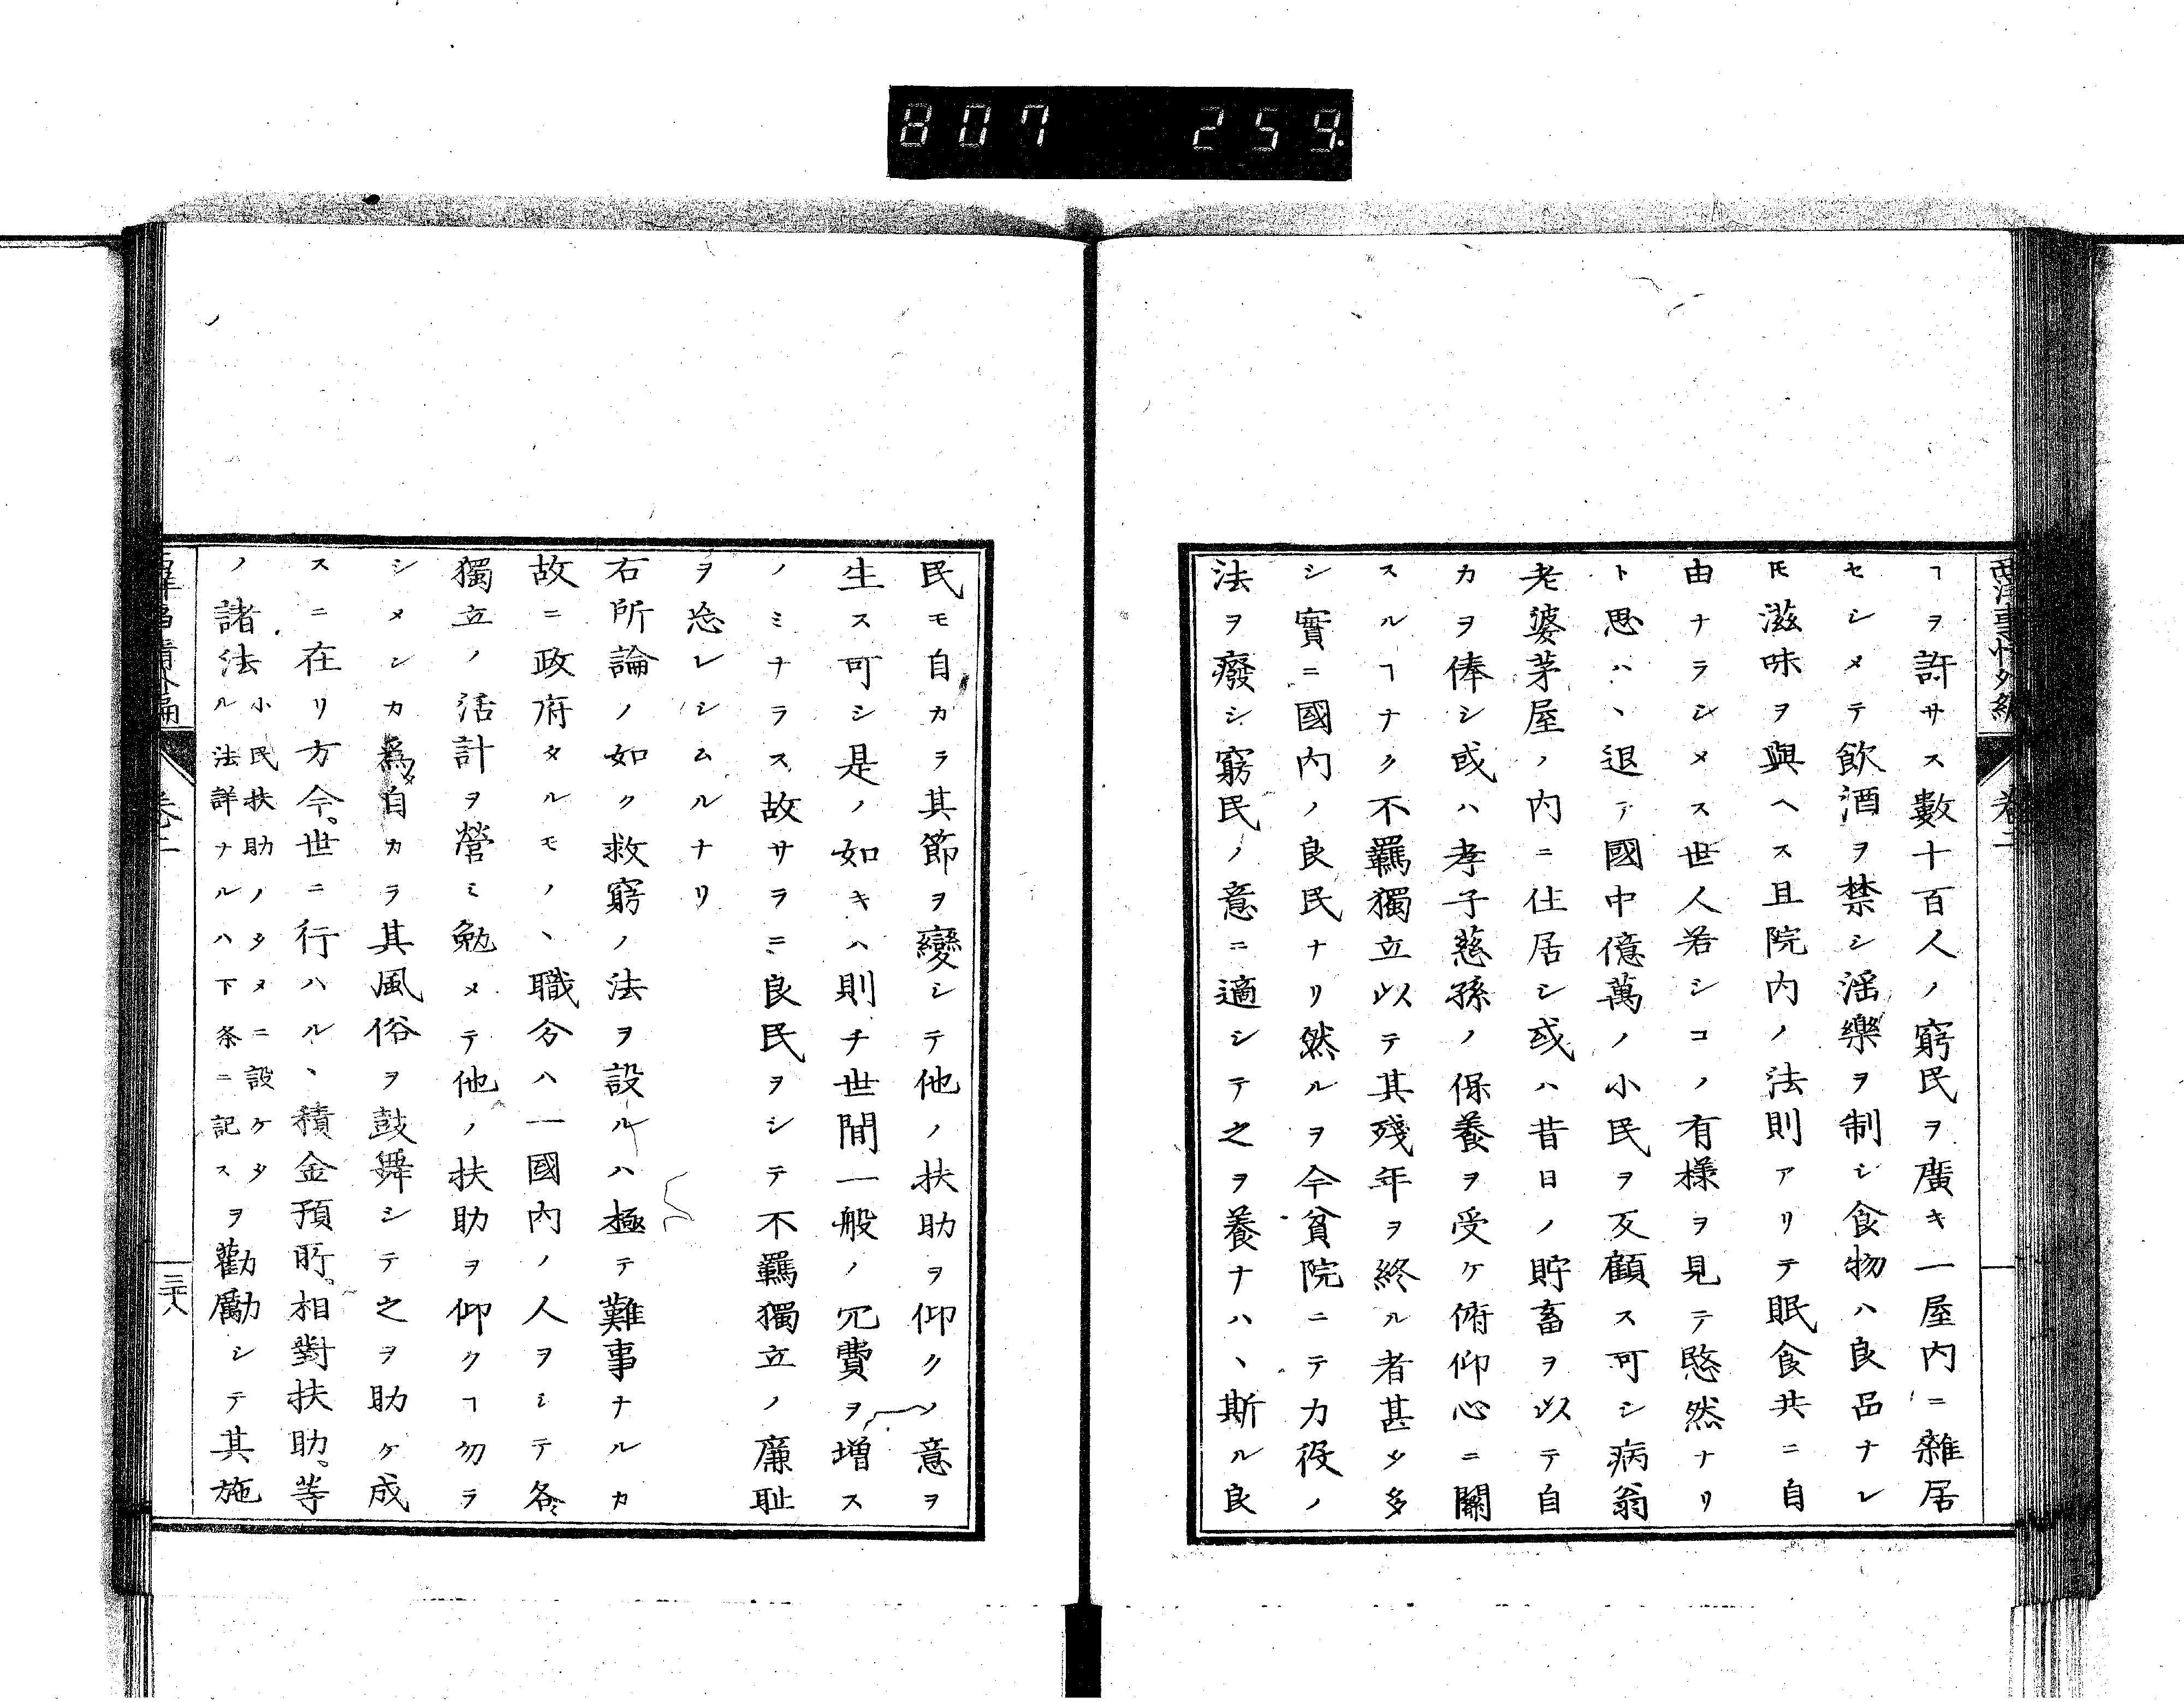 807 259.
西洋事情外編 卷二
ヿヲ許サス數十百人ノ窮民ヲ廣キ一屋内ニ雜居
セシメテ飲酒ヲ禁シ淫樂ヲ制シ食物ハ良品ナレ
𪜈滋味ヲ與ヘス且院内ノ法則アリテ眠食共ニ自
由ナラシメス世人若シコノ有樣ヲ見テ愍然ナリ
ト思ハヽ退テ國中億萬ノ小民ヲ反顧ス可シ病翁
老婆茅屋ノ内ニ住居シ或ハ昔日ノ貯畜ヲ以テ自
カヲ俸シ或ハ孝子慈孫ノ保養ヲ受ケ俯仰心ニ關
スルヿナク不羈獨立以テ其殘年ヲ終ル者甚タ多
シ實ニ國内ノ良民ナリ然ルヲ今貧院ニテ力役ノ
法ヲ癈シ窮民ノ意ニ適シテ之ヲ養ナハヽ斯ル良
民モ自カラ其節ヲ變シテ他ノ扶助ヲ仰クノ意ヲ
生ス可シ是ノ如キハ則チ世間一般ノ冗費ヲ增ス
ノミナラス故サラニ良民ヲシテ不羈獨立ノ廉耻
ヲ忘レシムルナリ
右所論ノ如ク救窮ノ法ヲ設ルハ極テ難事ナルカ
故ニ政府タルモノヽ職分ハ一國内ノ人ヲシテ各
獨立ノ活計ヲ營ミ勉メテ他ノ扶助ヲ仰クヿ勿ラ
シメンカ爲メ自カラ其風俗ヲ鼓舞シテ之ヲ助ケ成
スニ在リ方今世ニ行ハルヽ積金預所相對扶助等
ノ諸法小民扶助ノタメニ設ケタル法詳ナルハ下条ニ記スヲ勸勵シテ其施
卷二 三十八